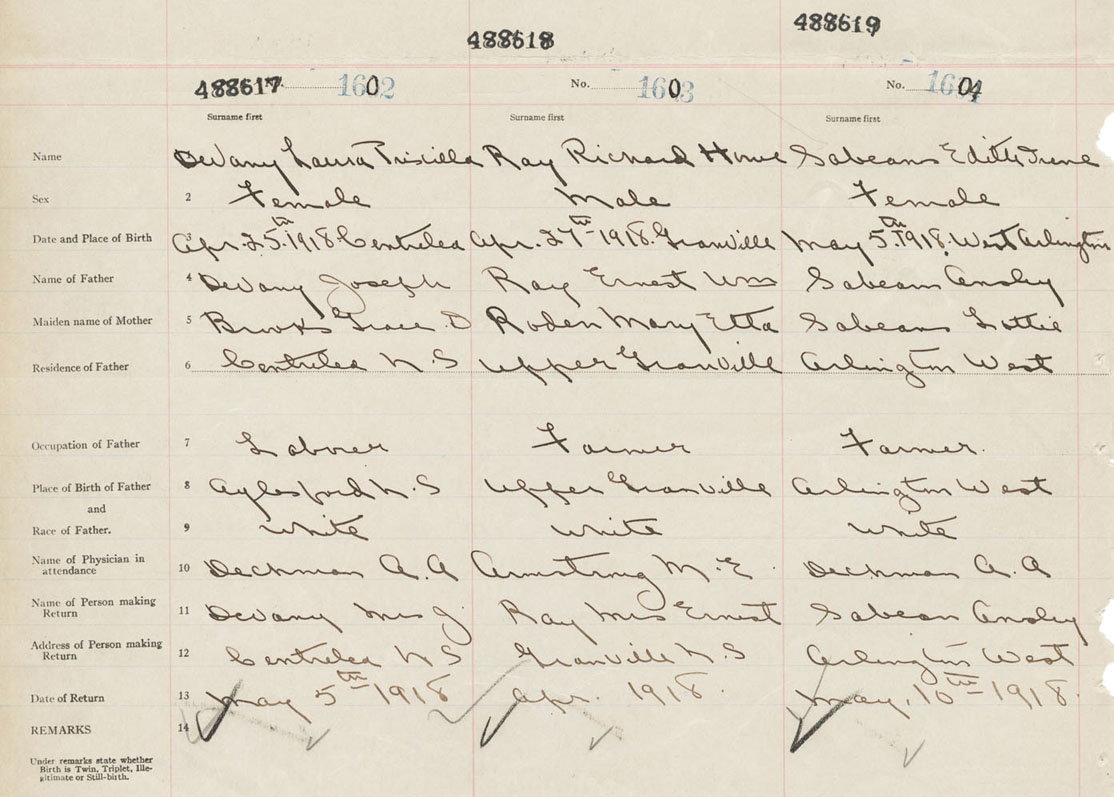 488617 488618 488619
No. 1602 No. 1603 No. 1604
Surname first Surname first Surname first
Name DeVany Laura Priscilla Ray Richard Howe Sabeans Edith Irene
Sex 2 Female Male Female
Date and Place of Birth 3 Apr. 25th 1918. Centrelea Apr. 27th 1918. Granville May 5th 1918. West Arlington
Name of Father 4 DeVany Joseph Ray Ernest Wm Sabeans Ansley
Maiden name of Mother 5 Brooks Grace D Roden Mary Etta Sabeans Lottie
Residence of Father 6 Centrelea N.S Upper Granville Arlington West
Occupation of Father 7 Laborer Farmer Farmer.
Place of Birth of Father 8 Aylesford N.S Upper Granville Arlington West
and
Race of Father. 9 White White White
Name of Physician in attendance 10 Deckman A.A Armstrong M.E. Deckman A.A
Name of Person making Return 11 DeVany Mrs J Ray Mrs Ernest Sabean Ansley
Address of Person making Return 12 Centrelea N S Granville N.S Arlington West
Date of Return 13 May 5th 1918 Apr. 1918. May, 10th 1918.
REMARKS 14
Under remarks state whether
Birth is Twin, Triplet, Ille-
gitimate or Still-birth.